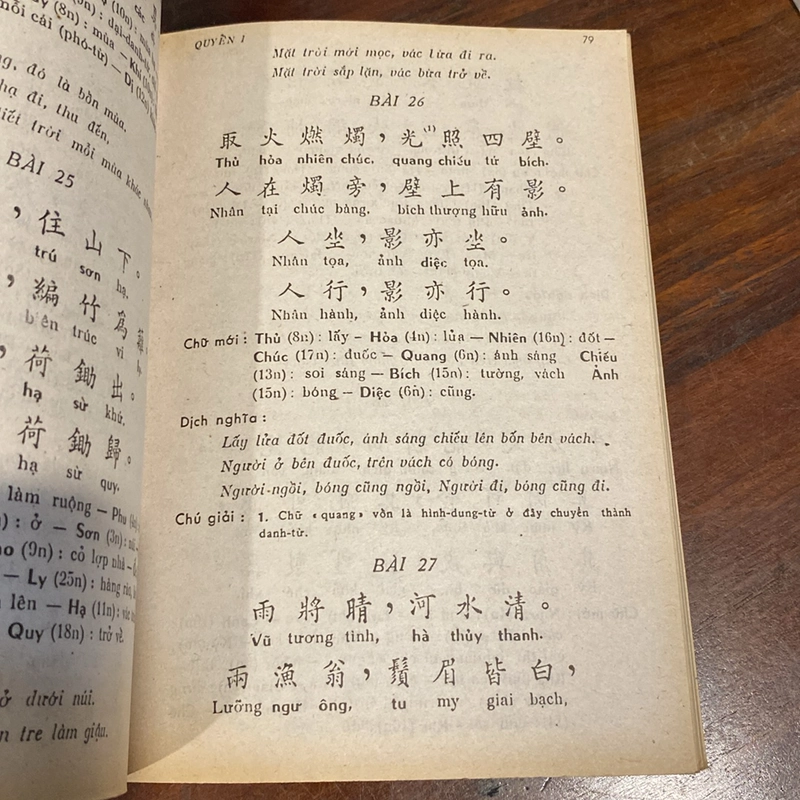 (10n) : mùa
(8n) : mùa — Khí
mỗi cái (phó-từ) — Dị
đó là bốn mùa.
hạ đi, thu đến.
tiết trời mỗi mùa khác
BÀI 25
，住山下。
trú sơn hạ.
，編竹為籬
biên trúc vi ly
荷鋤出。
hạ sừ khứ.
荷鋤歸。
hạ sừ quy.
làm ruộng — Phu
: ở — Sơn (3n) : núi
(9n) : cỏ lợp nhà
— Ly (25n) : hàng rào,
lên — Hạ (11n) : vác
Quy (18n) : trở về.
ở dưới núi.
tre làm giậu.
QUYỂN 1
79
Mặt trời mới mọc, vác lừa đi ra.
Mặt trời sắp lặn, vác bừa trở về.
BÀI 26
取火燃燭，光(1)照四壁。
Thủ hỏa nhiên chúc. quang chiếu tứ bích.
人在燭旁，壁上有影。
Nhân tại chúc bàng. bích thượng hữu ảnh.
人坐，影亦坐。
Nhân tọa, ảnh diệc tọa.
人行，影亦行。
Nhân hành, ảnh diệc hành.
Chữ mới : Thủ (8n) : lấy – Hỏa (4n) : lửa — Nhiên (16n) : đốt —
Chúc (17n) : đuốc — Quang (6n) : ánh sáng Chiếu
(13n) : soi sáng — Bích (15n) : tường, vách Ảnh
(15n) : bóng — Diệc (6n) : cũng.
Dịch nghĩa :
Lấy lửa đốt đuốc, ánh sáng chiếu lên bốn bên vách.
Người ở bên đuốc, trên vách có bóng.
Người-ngồi, bóng cũng ngồi, Người đi, bóng cũng đi.
Chú giải : 1. Chữ «quang» vốn là hình-dung-từ ở đây chuyển thành
danh-từ.
BÀI 27
雨將晴，河水清。
Vũ tương tình, hà thủy thanh.
兩漁翁，鬚眉皆白，
Lưỡng ngư ông, tu my giai bạch,